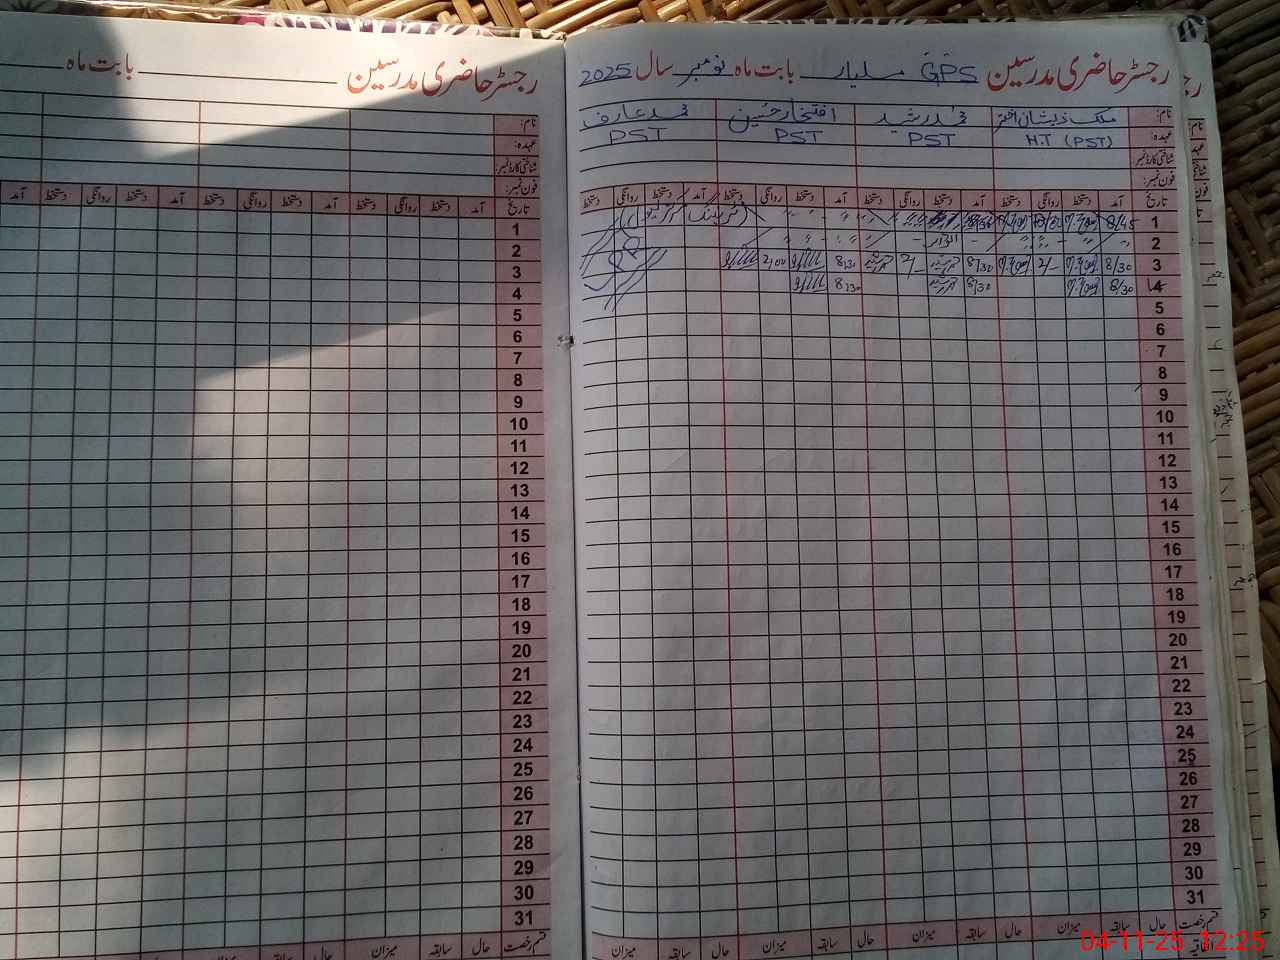 رجسٹر حاضری مدرسین GPS مسلیار بابت ماہ نومبر سال 2025
نام: ملک ذیشان اختر محمد رشید افتخار حسین محمد عارف
عہدہ: H.T (PST) PST PST PST
شناختی کارڈ نمبر
فون نمبر:
تاریخ آمد دستخط روانگی دستخط آمد دستخط روانگی دستخط آمد دستخط روانگی دستخط آمد دستخط روانگی دستخط
1 8/45
2 اتوار
3 8/30 2/- 8/30 2/- 8/30 2/00
4 8/30 8/30 8/30
5
6
7
8
9
10
11
12
13
14
15
16
17
18
19
20
21
22
23
24
25
26
27
28
29
30
31
قسم رخصت حال سابقہ میزان حال سابقہ میزان حال سابقہ میزان حال سابقہ میزان
رجسٹر حاضری مدرسین بابت ماہ
نام:
عہدہ:
شناختی کارڈ نمبر
فون نمبر:
تاریخ آمد دستخط روانگی دستخط آمد دستخط روانگی دستخط آمد دستخط روانگی دستخط آمد
1
2
3
4
5
6
7
8
9
10
11
12
13
14
15
16
17
18
19
20
21
22
23
24
25
26
27
28
29
30
31
قسم رخصت حال سابقہ میزان حال سابقہ میزان حال سابقہ میزان
04-11-25 12:25